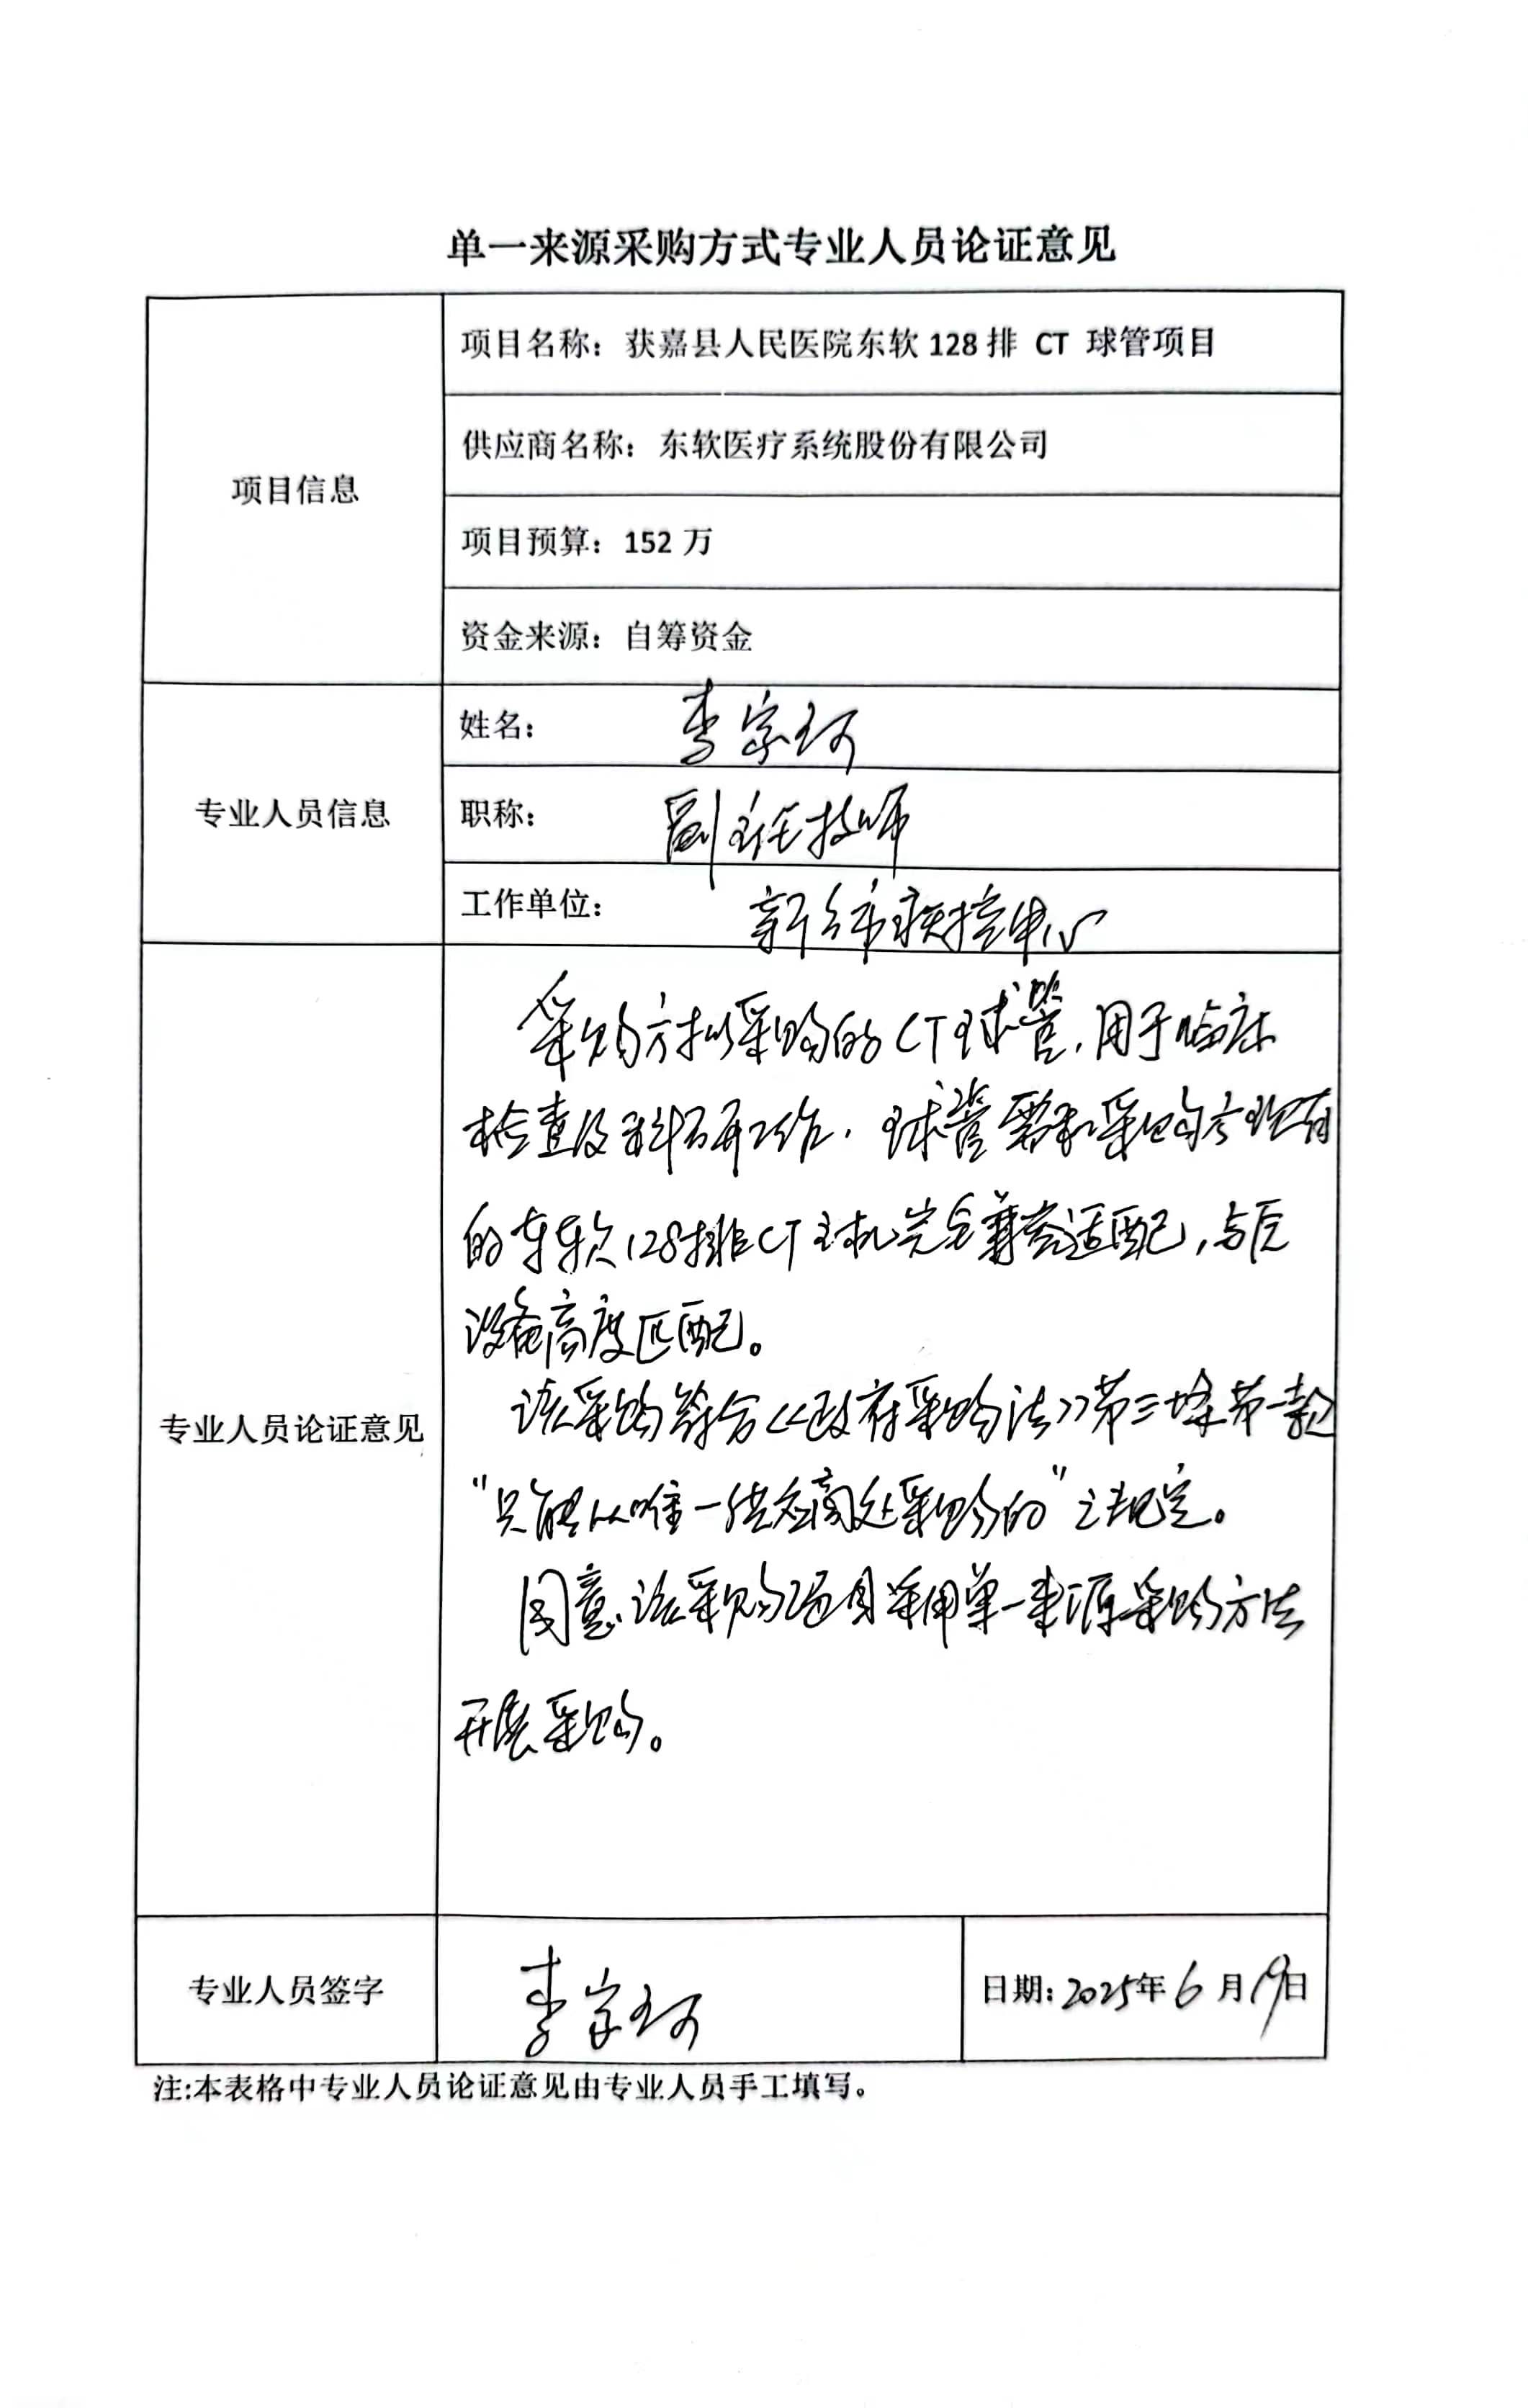 单一来源采购方式专业人员论证意见
项目信息
项目名称：获嘉县人民医院东软128排 CT 球管项目
供应商名称：东软医疗系统股份有限公司
项目预算：152万
资金来源：自筹资金
专业人员信息
姓名： 李宗珂
职称： 副主任技师
工作单位： 新乡市疾控中心
专业人员论证意见
采购方拟采购的CT球管，用于临床
检查及科研工作．球管需和采购方现有
的东软128排CT主机完全兼容适配，与原
设备高度匹配。
该采购符合《政府采购法》第三十一条第一款
“只能从唯一供应商处采购的”之规定。
同意该采购项目采用单一来源采购方法
开展采购。
专业人员签字
李宗珂
日期：2025年6月19日
注:本表格中专业人员论证意见由专业人员手工填写。